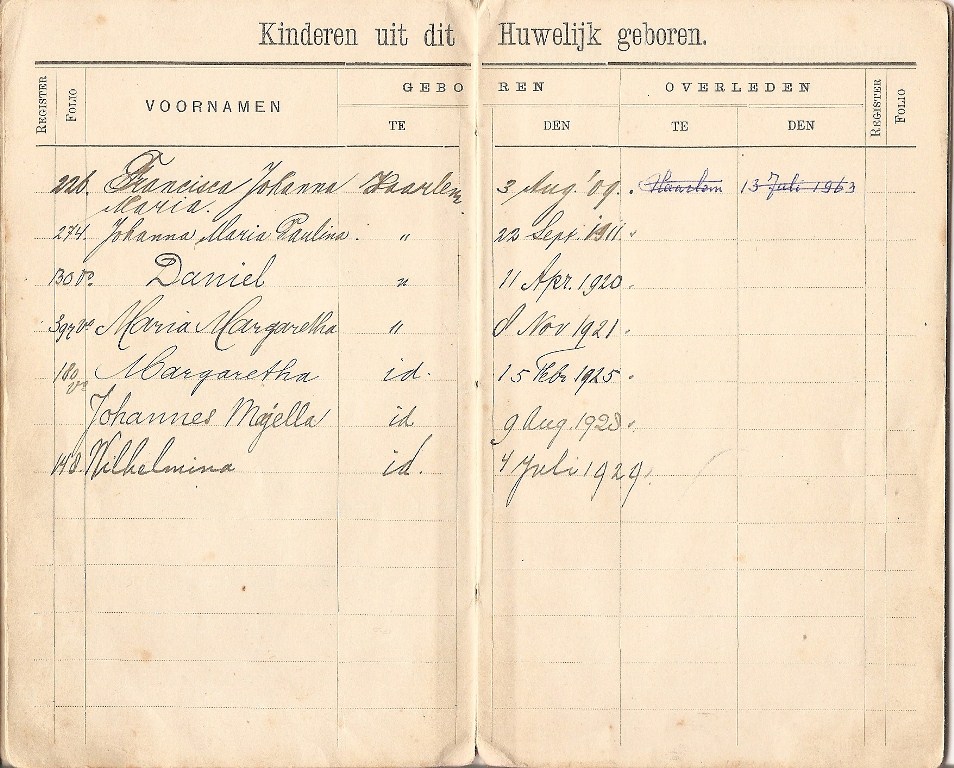 Kinderen uit dit Huwelijk geboren.
REGISTER FOLIO VOORNAMEN GEBOREN OVERLEDEN REGISTER FOLIO
TE DEN TE DEN
226. Francisca Johanna Haarlem 3 Aug. '09. Haarlem 13 Juli 1963
Maria.
274. Johanna Maria Paulina. " 22 Sept. 1911.
130 vo. Daniel " 11 Apr. 1920
397 vo Maria Margaretha " 8 Nov 1921
180 Margaretha id. 15 Febr 1925
vo
Johannes Majella id 9 Aug. 1928
148. Wilhelmina id. 4 Juli 1929.